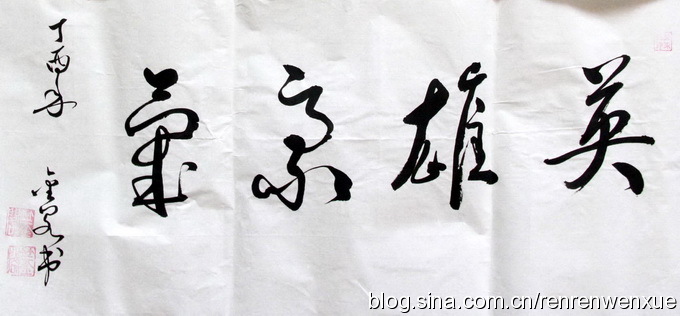 英雄豪氣
丁酉年
书
blog.sina.com.cn/renrenwenxue